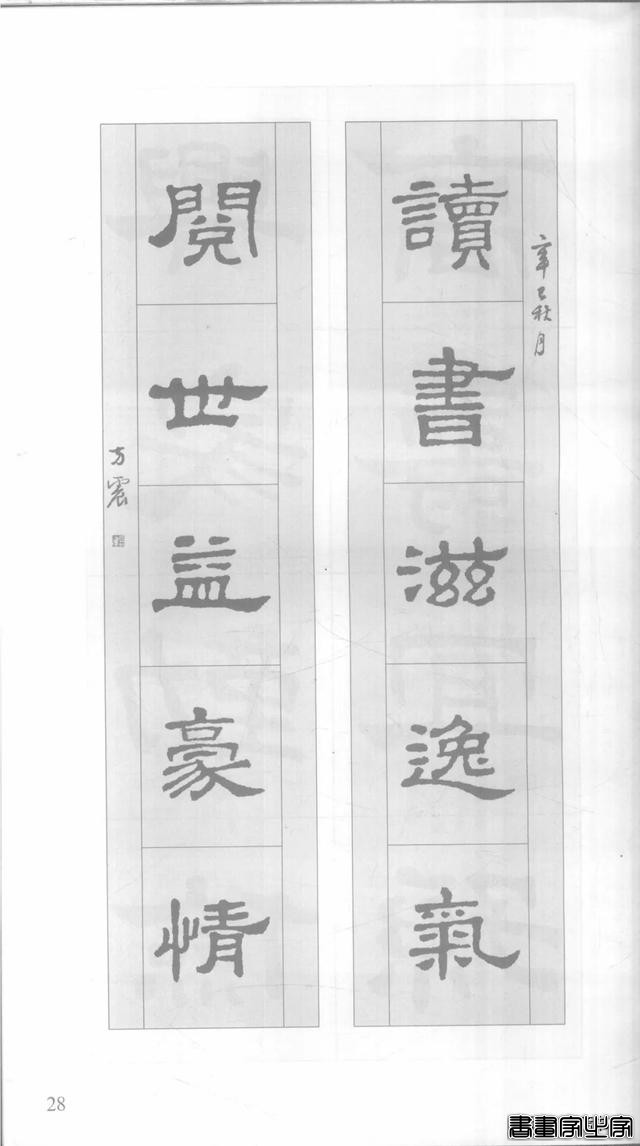 讀書滋逸氣
辛巳秋月
閱世益豪情
方震
28
書畫家必字